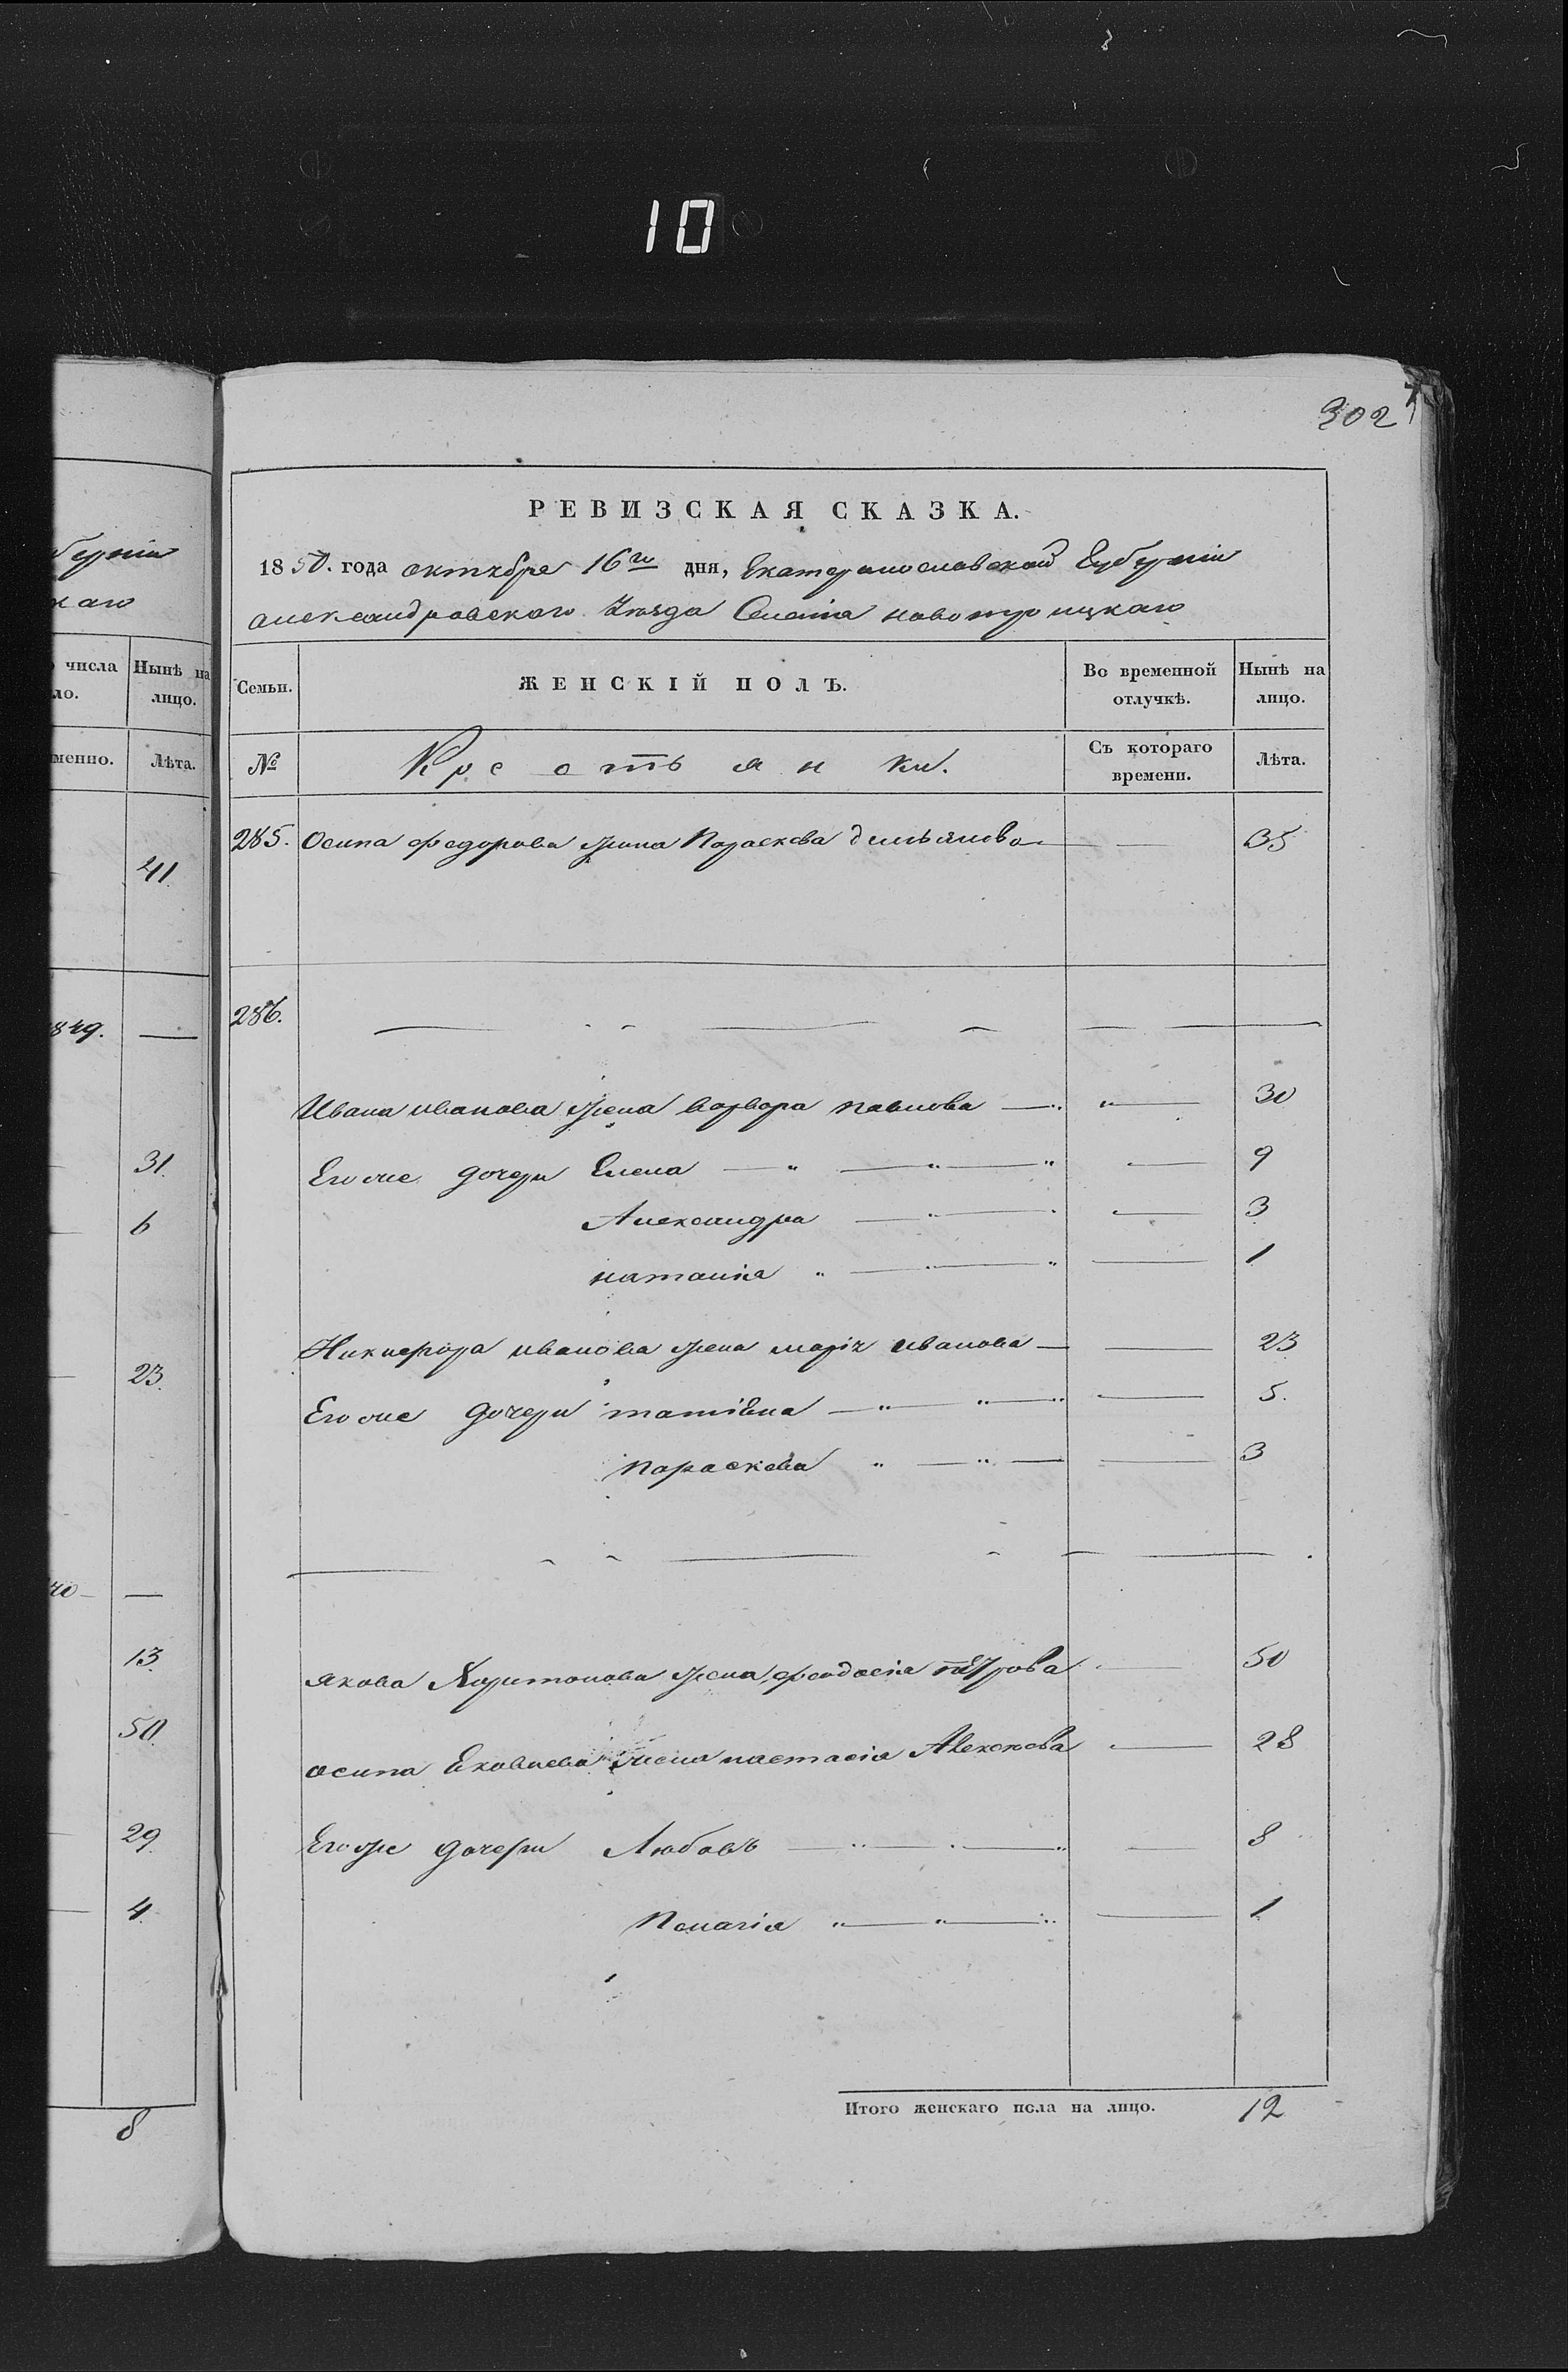 10
302
берніи
каго
числа
ло.
Нынѣ на
лицо.
менно.
Лѣта.
41.
849.
31.
6
23.
40
13.
50.
29.
4
8
РЕВИЗСКАЯ СКАЗКА.
1850. года октября 16го дня, Екатеринославской Губерніи
александровскаго Уѣзда Селенія новотроицкаго
Семьи.
ЖЕНСКІЙ ПОЛЪ.
Во временной
отлучкѣ.
Нынѣ на
лицо.
№
Крестьянки.
Съ котораго
времени.
Лѣта.
285. Осипа федорова жена Параскева демьянова 35
286.
Ивана иванова жена варвара павлова 30
Егоже дочери Елена 9
Александра 3
наталія 1
Никифора иванова жена марія иванова 23
Егоже дочери татіяна 5.
параскева 3
якова Харитонова жена феодосія петрова 50
осипа Яковлева жена настасія Алексеева 28
Егоже дочери Любовь 8
Пелагія 1
Итого женскаго пола на лицо. 12